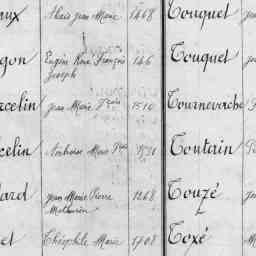 aux Alais Jean Marie 1468 Touquet
gon Eugène René François Joseph 146 Touquet
rcelin Jean Marie Fçois 1510 Tournevache
celin Ambroise Marie 1510 Toutain
ard Jean Marie Pierre Mathurin 1268 Touzé
et Théophile Marie 1708 Toxé